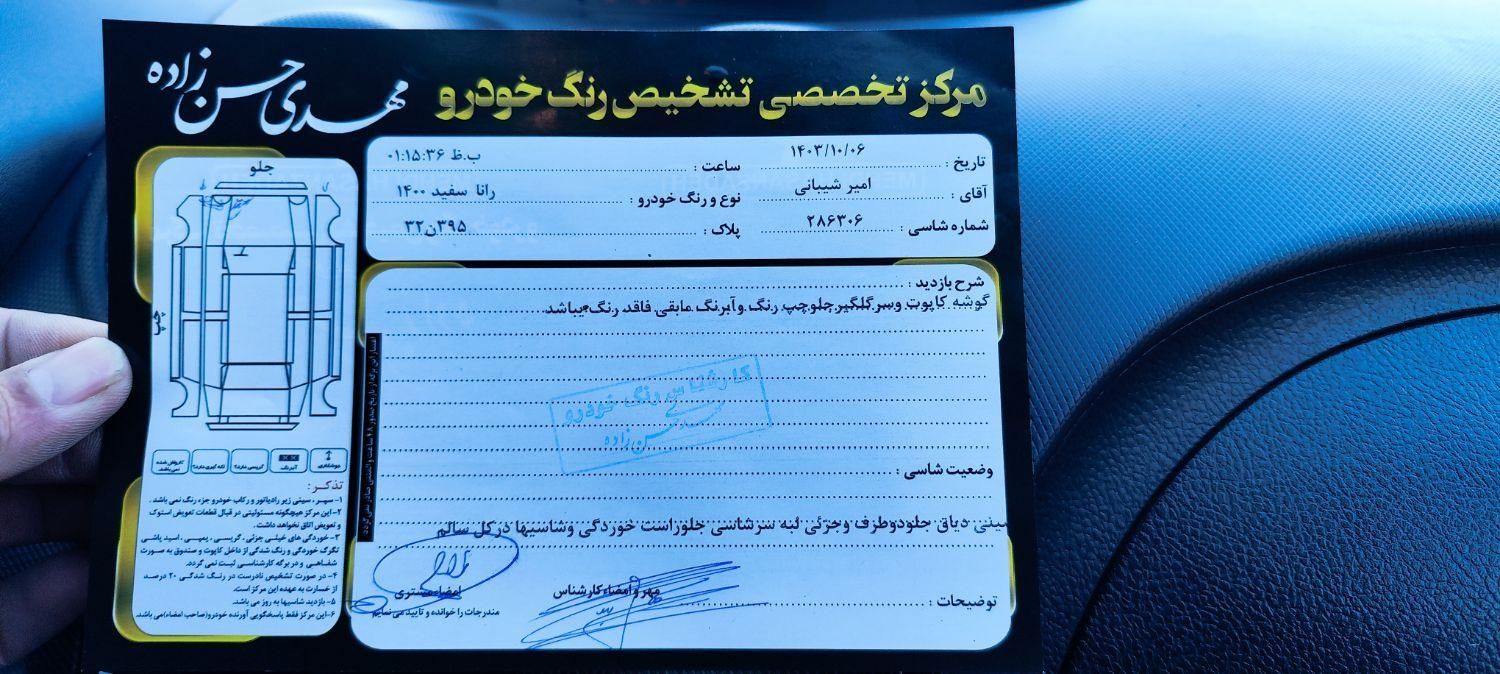 مرکز تخصصی تشخیص رنگ خودرو
مهدی حسن زاده
تاریخ : ۱۴۰۳/۱۰/۰۶
ساعت : ۰۱:۱۵:۳۶ ب.ظ
آقای : امیر شیبانی
نوع و رنگ خودرو : رانا سفید ۱۴۰۰
شماره شاسی : ۲۸۶۳۰۶
پلاک : ۳۹۵ن۳۲
جلو
چپ
شرح بازدید :
گوشه کاپوت وسرگلگیرجلوچپ رنگ وآبرنگ مابقی فاقد رنگ میباشد
کارشناس رنگ خودرو
مهدی حسن زاده
وضعیت شاسی :
سینی دیاق جلودوطرف وجزئی لبه سرشاسی جلوراست خوردگی وشاسیها درکل سالم
مهر و امضاء کارشناس
امضاء مشتری
مندرجات را خوانده و تایید می نمایم
توضیحات :
جوشکاری
آبرنگ
گریسی دارد؟
لکه گیری دارد؟
کارواش شده نمی باشد.
تذکر :
۱- سپر ، سینی زیر رادیاتور و رکاب خودرو جزء رنگ نمی باشد .
۲- این مرکز هیچگونه مسئولیتی در قبال قطعات تعویض استوک
و تعویض اتاق نخواهد داشت .
۳- خوردگی های خیلی جزئی ، گریسی ، پمپی ، اسید پاشی
تگرگ خوردگی و رنگ شدگی از داخل کاپوت و صندوق به صورت
شفاهی و در برگه کارشناسی ثبت نمی گردد.
۴- در صورت تشخیص نادرست در رنگ شدگی ۲۰ درصد
از خسارت به عهده این مرکز است.
۵- بازدید شاسیها به روز می باشد.
۶- این مرکز فقط پاسخگویی آورنده خودرو(صاحب امضاء)می باشد.